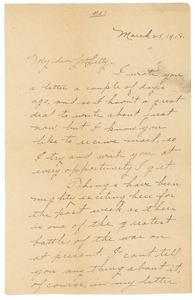 March 25, 1918.
My dear
I wrote you
a letter a couple of days
ago, and so I haven't a great
deal to write about just
now but I know you
like to receive mail, so
I try and write you at
every opportunity I get.
Things have been
mighty exciting here for
the past week as there
is one of the greatest
battles of the war on
at present, I can't tell
you anything about it,
of course, in my letter